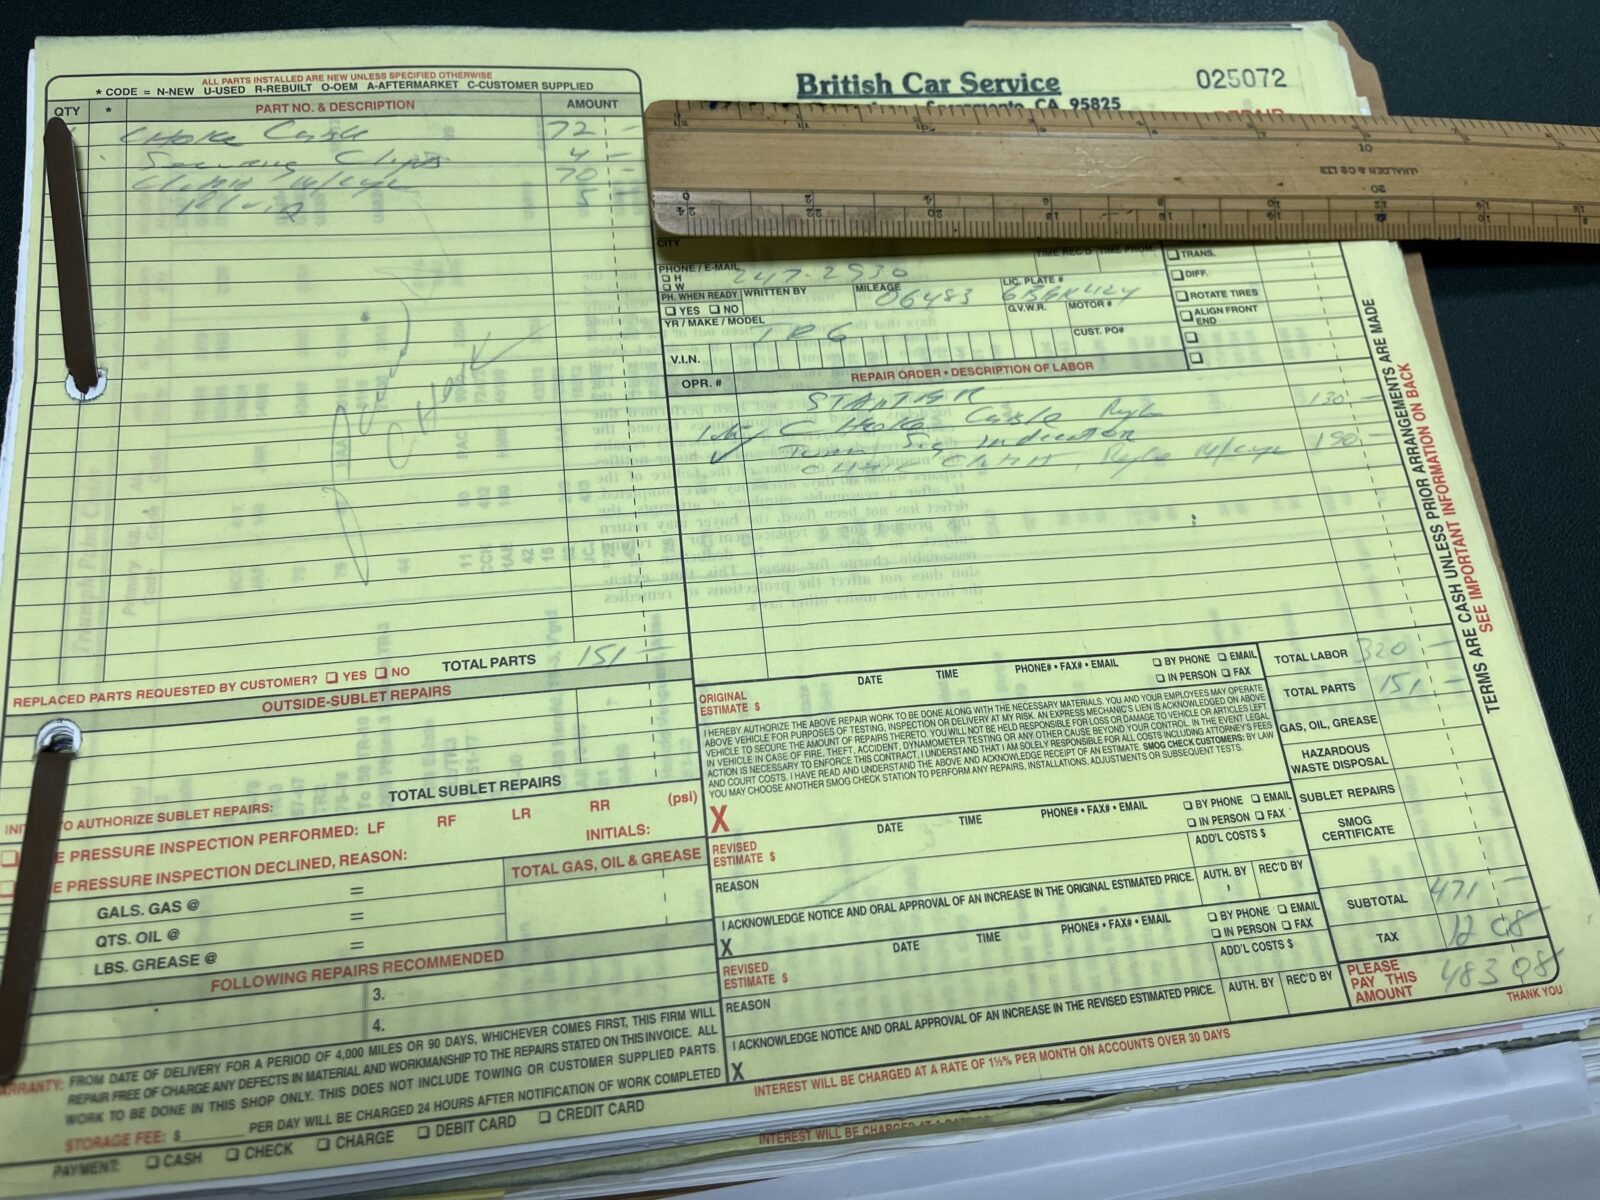 ALL PARTS INSTALLED ARE NEW UNLESS SPECIFIED OTHERWISE
* CODE = N-NEW U-USED R-REBUILT O-OEM A-AFTERMARKET C-CUSTOMER SUPPLIED
QTY * PART NO. & DESCRIPTION AMOUNT
CHOKE Cable 72 -
Securing Clips 4 -
70 -
5
TOTAL PARTS 151 -
REPLACED PARTS REQUESTED BY CUSTOMER? YES NO
OUTSIDE-SUBLET REPAIRS
TOTAL SUBLET REPAIRS
TO AUTHORIZE SUBLET REPAIRS:
E PRESSURE INSPECTION PERFORMED: LF RF LR RR (psi)
E PRESSURE INSPECTION DECLINED, REASON: INITIALS:
TOTAL GAS, OIL & GREASE
GALS. GAS @ =
QTS. OIL @ =
LBS. GREASE @ =
FOLLOWING REPAIRS RECOMMENDED
3.
4.
WARRANTY: FROM DATE OF DELIVERY FOR A PERIOD OF 4,000 MILES OR 90 DAYS, WHICHEVER COMES FIRST, THIS FIRM WILL
REPAIR FREE OF CHARGE ANY DEFECTS IN MATERIAL AND WORKMANSHIP TO THE REPAIRS STATED ON THIS INVOICE. ALL
WORK TO BE DONE IN THIS SHOP ONLY. THIS DOES NOT INCLUDE TOWING OR CUSTOMER SUPPLIED PARTS.
STORAGE FEE: $ PER DAY WILL BE CHARGED 24 HOURS AFTER NOTIFICATION OF WORK COMPLETED
PAYMENT: CASH CHECK CHARGE DEBIT CARD CREDIT CARD
British Car Service 025072
Sacramento, CA 95825
J.HALDEN & CO LTD
CITY TIME REC'D TIME PROM.
PHONE / E-MAIL
H
W
247-2930
PH. WHEN READY YES NO
WRITTEN BY
MILEAGE 06483
LIC. PLATE #
G.V.W.R. MOTOR #
YR / MAKE / MODEL TR6
CUST. PO#
V.I.N.
TRANS.
DIFF.
ROTATE TIRES
ALIGN FRONT END
OPR. # REPAIR ORDER • DESCRIPTION OF LABOR
STARTER
CHOKE Cable 130 -
Turn Sig Indication
190 -
ORIGINAL ESTIMATE $ DATE TIME PHONE# • FAX# • EMAIL BY PHONE EMAIL IN PERSON FAX
I HEREBY AUTHORIZE THE ABOVE REPAIR WORK TO BE DONE ALONG WITH THE NECESSARY MATERIALS. YOU AND YOUR EMPLOYEES MAY OPERATE
ABOVE VEHICLE FOR PURPOSES OF TESTING, INSPECTION OR DELIVERY AT MY RISK. AN EXPRESS MECHANIC'S LIEN IS ACKNOWLEDGED ON ABOVE
VEHICLE TO SECURE THE AMOUNT OF REPAIRS THERETO. YOU WILL NOT BE HELD RESPONSIBLE FOR LOSS OR DAMAGE TO VEHICLE OR ARTICLES LEFT
IN VEHICLE IN CASE OF FIRE, THEFT, ACCIDENT, DYNAMOMETER TESTING OR ANY OTHER CAUSE BEYOND YOUR CONTROL. IN THE EVENT LEGAL
ACTION IS NECESSARY TO ENFORCE THIS CONTRACT, I UNDERSTAND THAT I AM SOLELY RESPONSIBLE FOR ALL COSTS INCLUDING ATTORNEY'S FEES
AND COURT COSTS. I HAVE READ AND UNDERSTAND THE ABOVE AND ACKNOWLEDGE RECEIPT OF AN ESTIMATE. SMOG CHECK CUSTOMERS: BY LAW
YOU MAY CHOOSE ANOTHER SMOG CHECK STATION TO PERFORM ANY REPAIRS, INSTALLATIONS, ADJUSTMENTS OR SUBSEQUENT TESTS.
X
REVISED ESTIMATE $ DATE TIME PHONE# • FAX# • EMAIL BY PHONE EMAIL IN PERSON FAX
ADD'L COSTS $
REASON AUTH. BY REC'D BY
I ACKNOWLEDGE NOTICE AND ORAL APPROVAL OF AN INCREASE IN THE ORIGINAL ESTIMATED PRICE.
X
REVISED ESTIMATE $ DATE TIME PHONE# • FAX# • EMAIL BY PHONE EMAIL IN PERSON FAX
ADD'L COSTS $
REASON AUTH. BY REC'D BY
I ACKNOWLEDGE NOTICE AND ORAL APPROVAL OF AN INCREASE IN THE REVISED ESTIMATED PRICE.
X
INTEREST WILL BE CHARGED AT A RATE OF 1½% PER MONTH ON ACCOUNTS OVER 30 DAYS
TOTAL LABOR 320 -
TOTAL PARTS 151 -
GAS, OIL, GREASE
HAZARDOUS WASTE DISPOSAL
SUBLET REPAIRS
SMOG CERTIFICATE
SUBTOTAL 471 -
TAX 12 08
PLEASE PAY THIS AMOUNT 483 08
THANK YOU
TERMS ARE CASH UNLESS PRIOR ARRANGEMENTS ARE MADE
SEE IMPORTANT INFORMATION ON BACK
INTEREST WILL BE CHARGED AT A